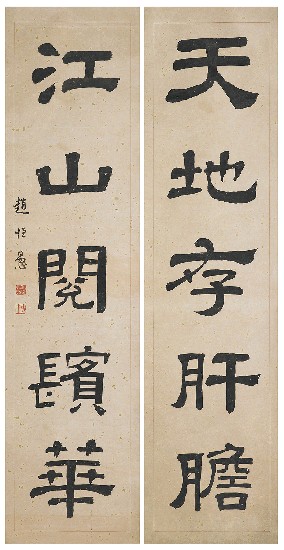 天地存肝膽
江山閱鬢華
趙恒悳